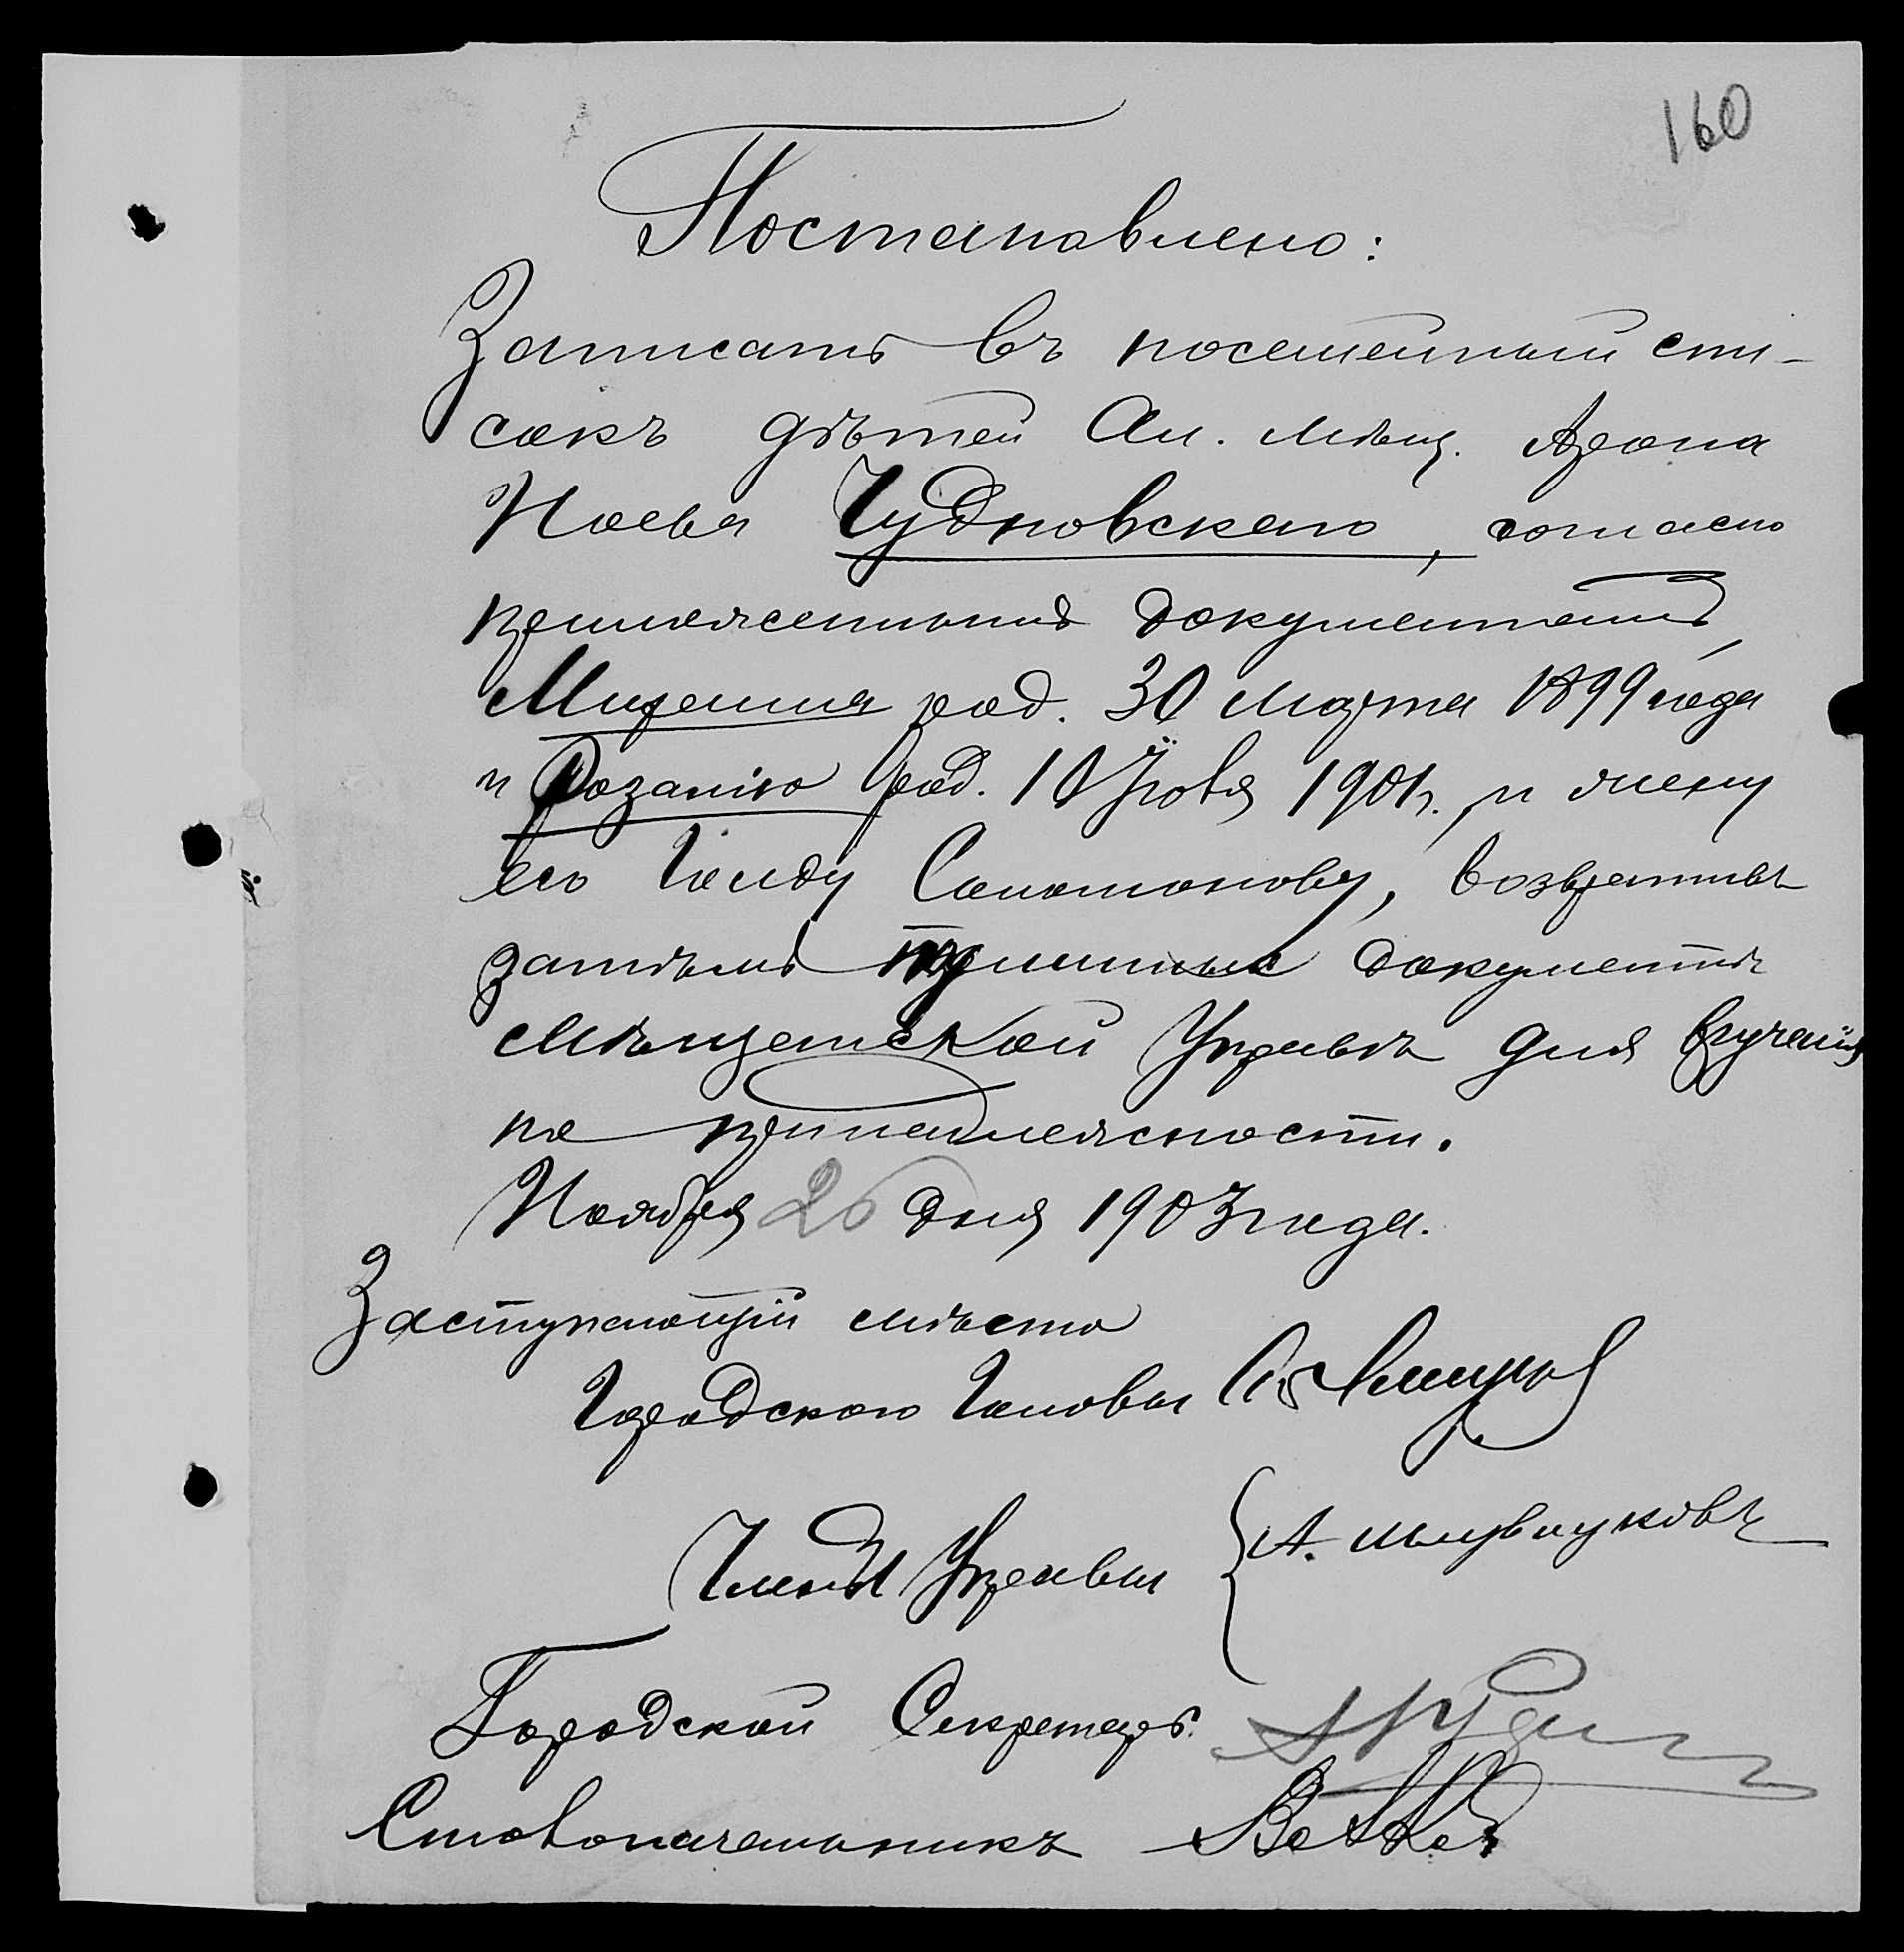 160
Постановлено:
Записать въ посемейный спи-
сокъ дѣтей Ал. мѣщ. Арона
Ноева Чудновскаго, согласно
приложеннымъ документамъ,
род. 30 Марта 1899 года
и Розалію род. 10 1901 г., и жену
его Гольду Соломонову, возвративъ
затѣмъ подлинные документы
Мѣщанской Управѣ для врученія
по принадлежности.
Ноября 26 дня 1903 года.
Заступающій мѣсто
Городского Головы
Члены Управы { А.
Городской Секретарь
Столоначальникъ